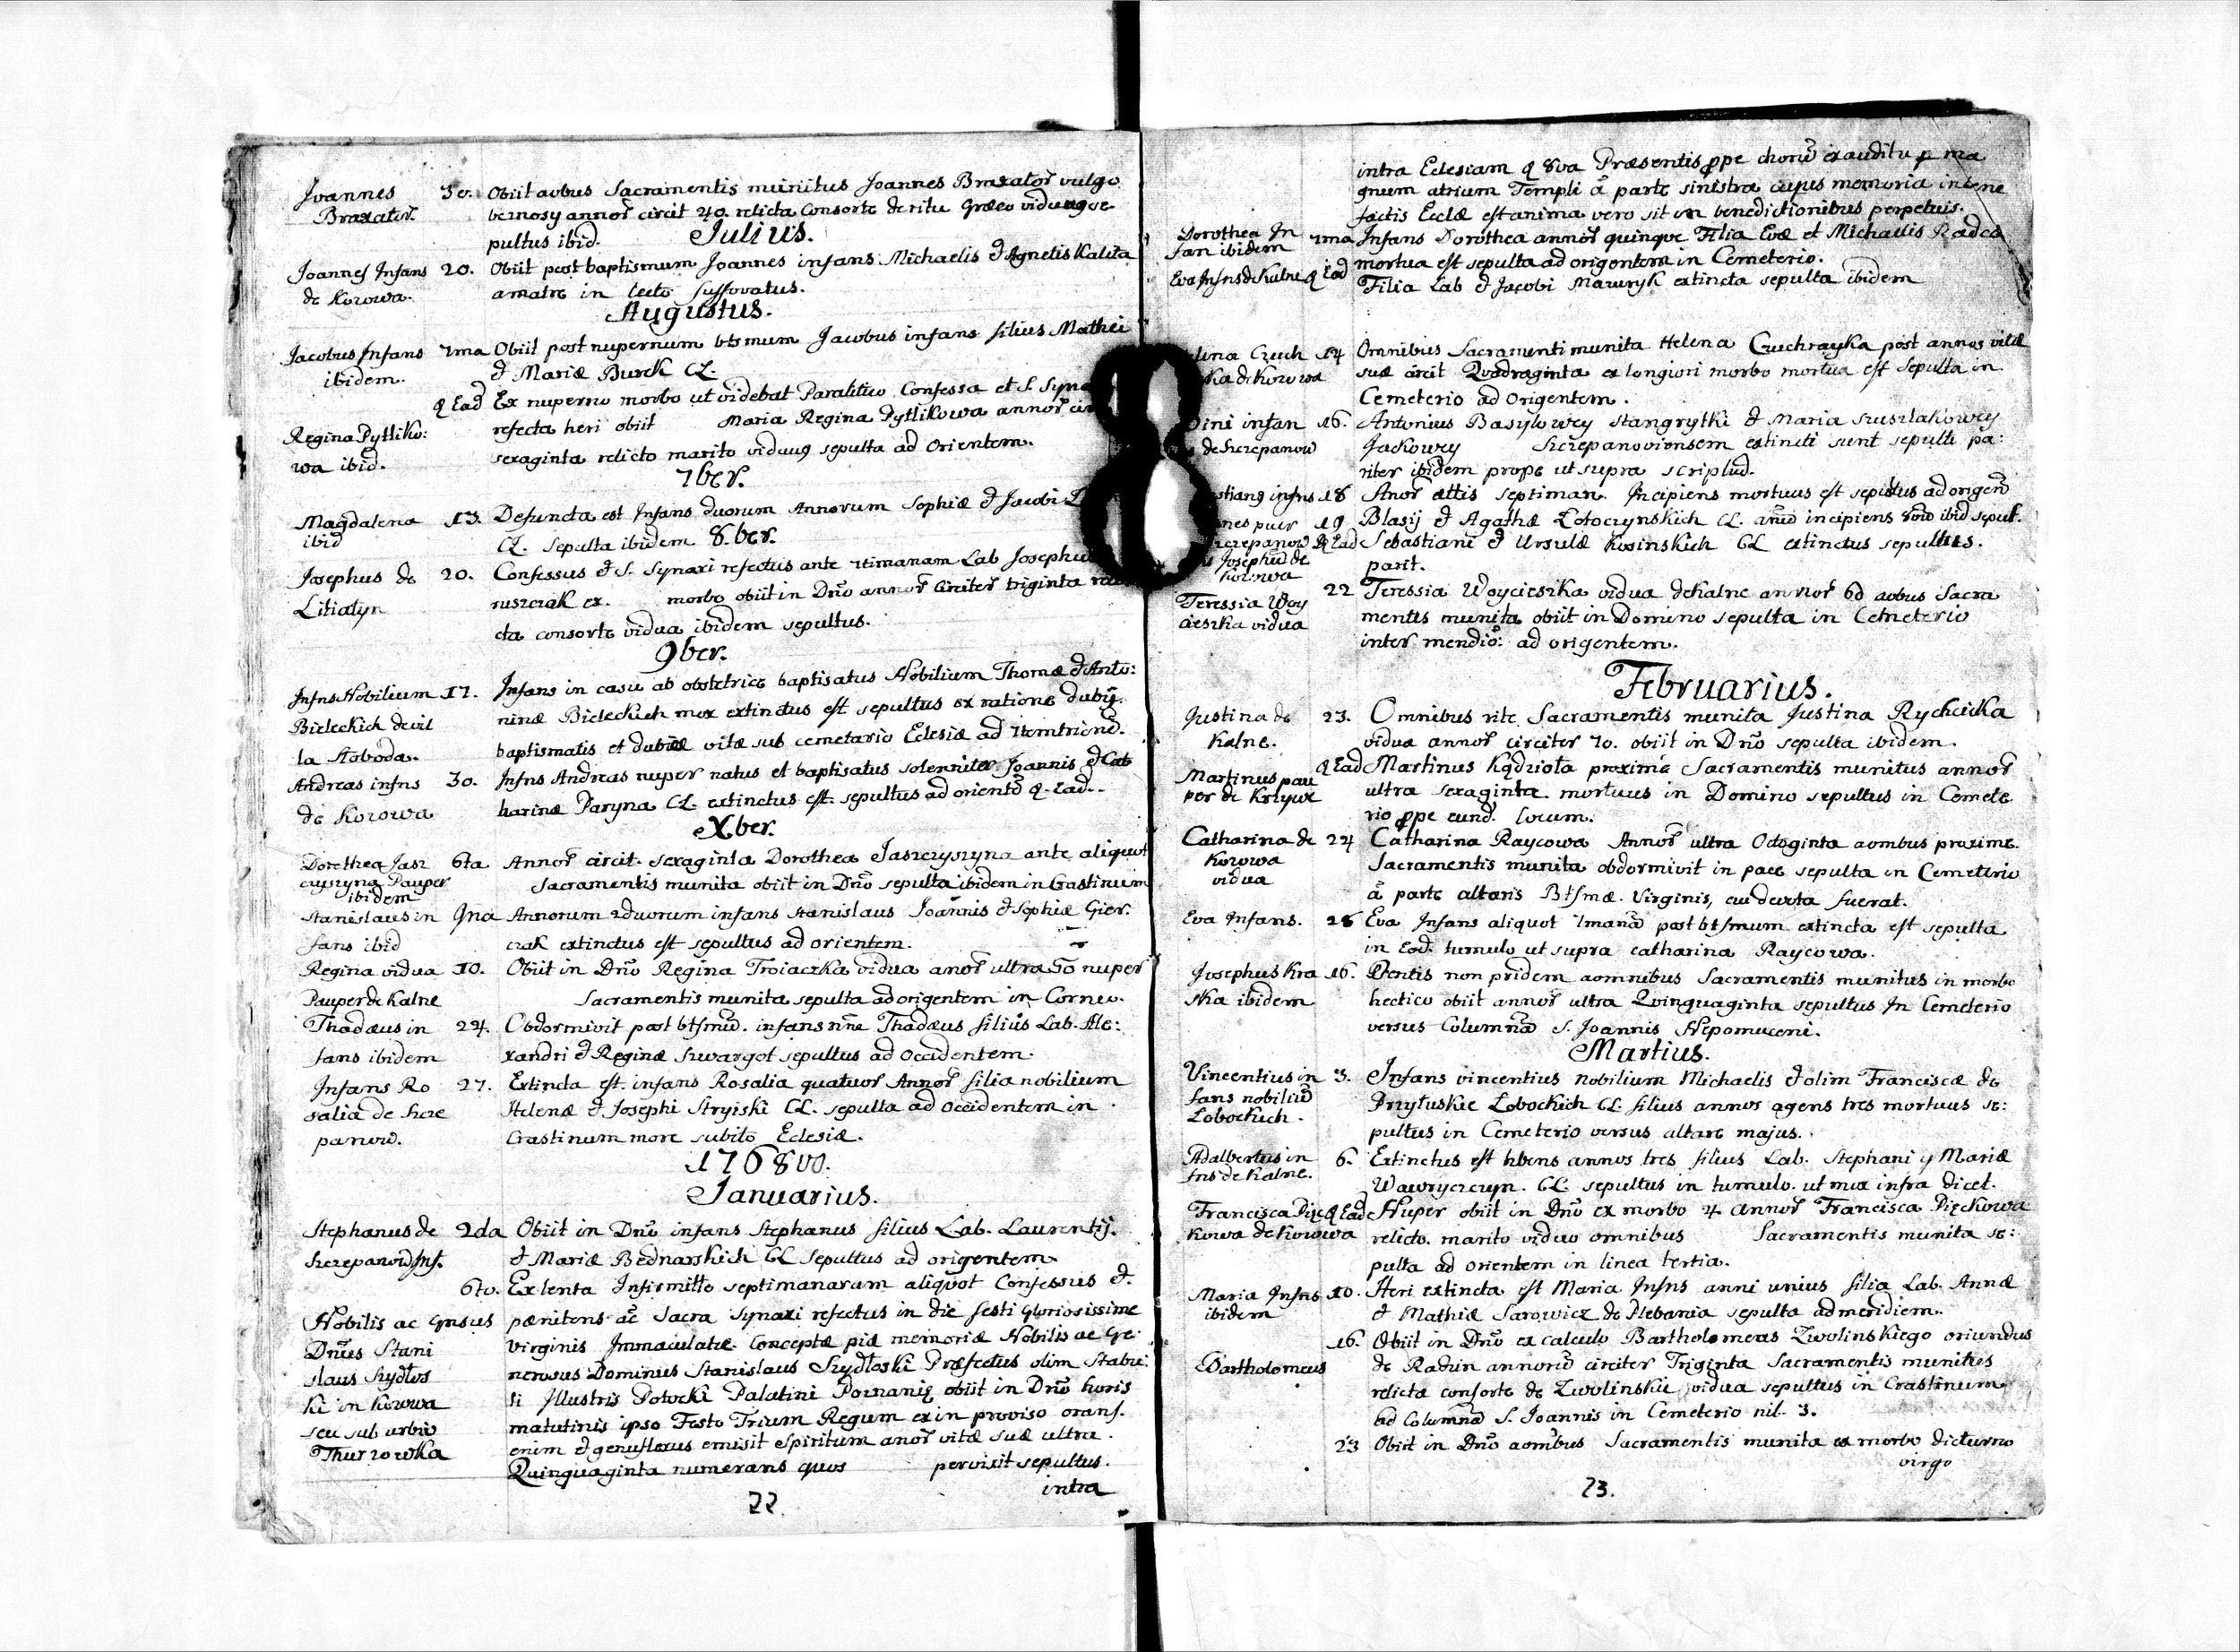 Joannes 30. Obiit aobus Sacramentis munitus Joannes Braxator vulgo
Braxator. bernosy annor circit 40. relicta Consorte de ritu Græco viduus se
pultus ibid. Julius.
Joannes Infans 20. Obiit post baptismum Joannes infans Michaelis et Agnetis Kaleta
de Kozowa. a matre in lecto suffovatus.
Augustus.
Jacobus Infans 7ma Obiit post nupernum btsmum Jacobus infans filius Mathei
ibidem. et Mariæ Burek CL.
q Ead Ex nuperno morbo ut videbat Paralitico Confessa et S. Syna
Regina Pytliko: refecta heri obiit Maria Regina Pytlikowa annor cir
wa ibid. sexaginta relicto marito viduus sepulta ad Orientem.
7ber.
Magdalena 13. Defuncta est Infans duorum Annorum Sophiæ et Jacobi
ibid CL. sepulta ibidem 8.ber.
Josephus de 20. Confessus et S. Synaxi refectus ante 7timanam Lab Josephus
Litiatyn ruszczak ex. morbo obiit in Dno annor circiter triginta reli
cta consorte vidua ibidem sepultus.
9ber.
Infns Nobilium 17. Infans in casu ab obstetrice baptisatus Nobilium Thomæ et Anto:
Bieleckich de vil ninæ Bieleckich mox extinctus est sepultus ex ratione dubij
la Sloboda. baptismatis et dubiæ vitæ sub cemetario Eclesiæ ad 7temtrione.
Andreas infns 30. Infns Andreas nuper natus et baptisatus solenniter Joannis et Cat
de Kozowa harinæ Paryna CL. extinctus est sepultus ad oriente q. Ead.
Xber.
Dorothea Jasz 6ta Annor circit. sexaginta Dorothea Jaszczyszyna ante aliquot
czyszyna Pauper Sacramentis munita obiit in Dno sepulta ibidem in Crastinum
ibidem
Stanislaus in 9na Annorum 2duorum infans Stanislaus Joannis et Sophiæ Gier.
fans ibid czak extinctus est sepultus ad orientem.
Regina vidua 10. Obiit in Dno Regina Troiaczka vidua anor ultra 50 nuper
Pauper de Kalne Sacramentis munita sepulta ad origentem in Corneo.
Thadæus in 24. Obdormivit post btsmu. infans nne Thadæus filius Lab. Ale:
fans ibidem xandri et Reginæ Szwargot sepultus ad occidentem.
Infans Ro 27. Extincta est. infans Rosalia quatuor Annor filia nobilium
salia de Szcze Helenæ et Josephi Stryiski CL. sepulta ad occidentem in
panow. Crastinum more subito Eclesiæ.
1768vo.
Januarius.
Stephanus de 2da Obiit in Dno infans Stephanus filius Lab. Laurentij.
Szczepanow Inf. et Mariæ Bednarskich CL sepultus ad origentem
6to. Ex lenta Infirmitte septimanarum aliquot Confessus et.
Nobilis ac Gnsus pænitens ac Sacra Synaxi refectus in die festi Gloriosissime
Dnus Stani Virginis Immaculatæ Conceptæ piæ memoriæ Nobilis ac Ge
slaus Szydłos nerosus Dominus Stanislaus Szydłoski Præfectus olim Stabu:
ki in Kozowa li Illustris Potocki Palatini Poznaniæ obiit in Dno horis
seu sub urbio matutinis ipso Festo Trium Regum ex in proviso orans.
Thurzowka enim et genuflexus emisit Spiritum anor vitæ suæ ultra.
Quinquaginta numerans quos pervixit sepultus.
intra
22.
intra Eclesiam q 8va Præsentis ppe choru exauditu p ma
gnum atrium Templi a parte sinistra cujus memoria in bene
factis Ecclæ est anima vero sit in benedictionibus perpetuis.
Dorothea In 7ma Infans Dorothea annor quinque Filia Evæ et Michaelis Radca
fan ibidem mortua est sepulta ad origentem in Cemeterio.
Eva Infns de Kalne q Ead Filia Lab et Jacobi Mazuryk extincta sepulta ibidem
lena Czech 14 Omnibus Sacramenti munita Helena Czechrayka post annos vitæ
ka de Kozowa suæ circit Quadraginta ex longiori morbo mortua est sepulta in
Cemeterio ad Origentem.
Bini infan 16. Antonius Basylowey Stangrytki et Maria Szuszlakowey
de Szczepanow Jackowey Szczepanoviensem extincti sunt sepulti pa:
riter ibidem prope ut supra scriptud.
stians infns 18 Anor ætis septiman. Incipiens mortuus est sepultus ad origen
nes puer 19 Blasij et Agathæ Łotoczynskich CL. anu incipiens 8vo ibid sepul.
czepanow q Ead Sebastiani et Ursulæ Kosinskich CL extinctus sepultus.
Josephus de parit.
Kozowa
Teressia Woy 22 Teressia Woycieszka vidua de Kalne annor 60 aobus Sacra
cieszka vidua mentis munita obiit in Domino sepulta in Cemeterio
inter mendio: ad origentem.
Februarius.
Justina de 23. Omnibus rite Sacramentis munita Justina Rychcicka
Kalne. vidua annor circiter 70. obiit in Dno sepulta ibidem.
Martinus pau q Ead Martinus Kądziota proxime Sacramentis munitus annor
per de Krzywe ultra sexaginta mortuus in Domino sepultus in Cemete
rio ppe eund. locum.
Catharina de 24 Catharina Raycowa Annor ultra Octoginta aombus proxime
Kozowa Sacramentis munita obdormivit in pace sepulta in Cemeterio
vidua a parte altaris Btsmæ. Virginis, cui devota fuerat.
Eva Infans. 26 Eva Infans aliquot 7mana post btsmum extincta est sepulta
in Eod. tumulo ut supra Catharina Raycowa.
Josephus Kra 16. Dentis non pridem aomnibus Sacramentis munitus in morbo
ska ibidem hectico obiit annor ultra Quinquaginta sepultus In Cemeterio
versus Columna S. Joannis Nepomuceni.
Martius.
Vincentius in 3. Infans vincentius nobilium Michaelis et olim Franciscæ de
fans nobiliu Przyłuskie Łobockich CL. filius annos agens tres mortuus se:
Łobockich. pultus in Cemeterio versus altare majus.
Adalbertus in 6. Extinctus est hbens annos tres filius Lab. Stephani y Mariæ
fns de Kalne. Wawryczczyn. CL. sepultus in tumulo. ut mox infra dicet.
Francisca Pięc q Ead Nuper obiit in Dno ex morbo 4 annor Francisca Pięckowa
kowa de Kozowa relicto. marito viduo omnibus Sacramentis munita se:
pulta ad orientem in linea tertia.
Maria Infns 10. Heri extincta est Maria Infns anni unius filia Lab. Annæ
ibidem et Mathiæ Sarowicz de Plebania sepulta ad meridiem.
16. Obiit in Dno ex calculo Bartholomeus Zwolinskiego oriundus
Bartholomeus de Radun annoru circiter Triginta Sacramentis munitus
relicta consorte de Zwolinskie vidua sepultus in Crastinum
ad Columna S. Joannis in Cemeterio nil. 3.
23 Obiit in Dno aombus Sacramentis munita ex morbo dicturno
virgo
23.